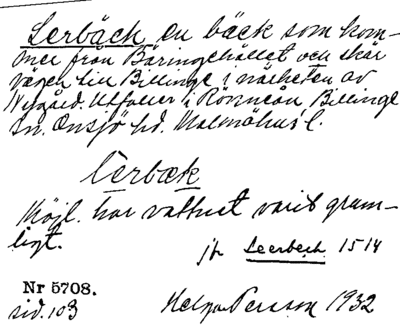 Lerbäck en bäck som kom-
mer från Bäringehållet och skär
vägen till Billinge i närheten av
Nygård. Utfaller i Rönneån Billinge
sn. Onsjö hd. Malmöhus l.
lerbæk
Möjl. har vattnet varit grum-
ligt.
jfr Leerbech 1514
Nr 5708.
sid. 103
Helga Persson 1932